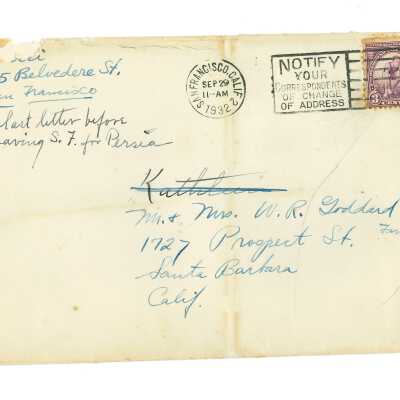 5 Belvedere St.
San Francisco
last letter before
leaving S. F. for Persia
SAN FRANCISCO, CALIF.
SEP 29
11-AM
1932
NOTIFY
YOUR
CORRESPONDENTS
OF CHANGE
OF ADDRESS
Kathleen
Mr. & Mrs. W. R. Goddard
1727 Prospect St.
Santa Barbara
Calif.